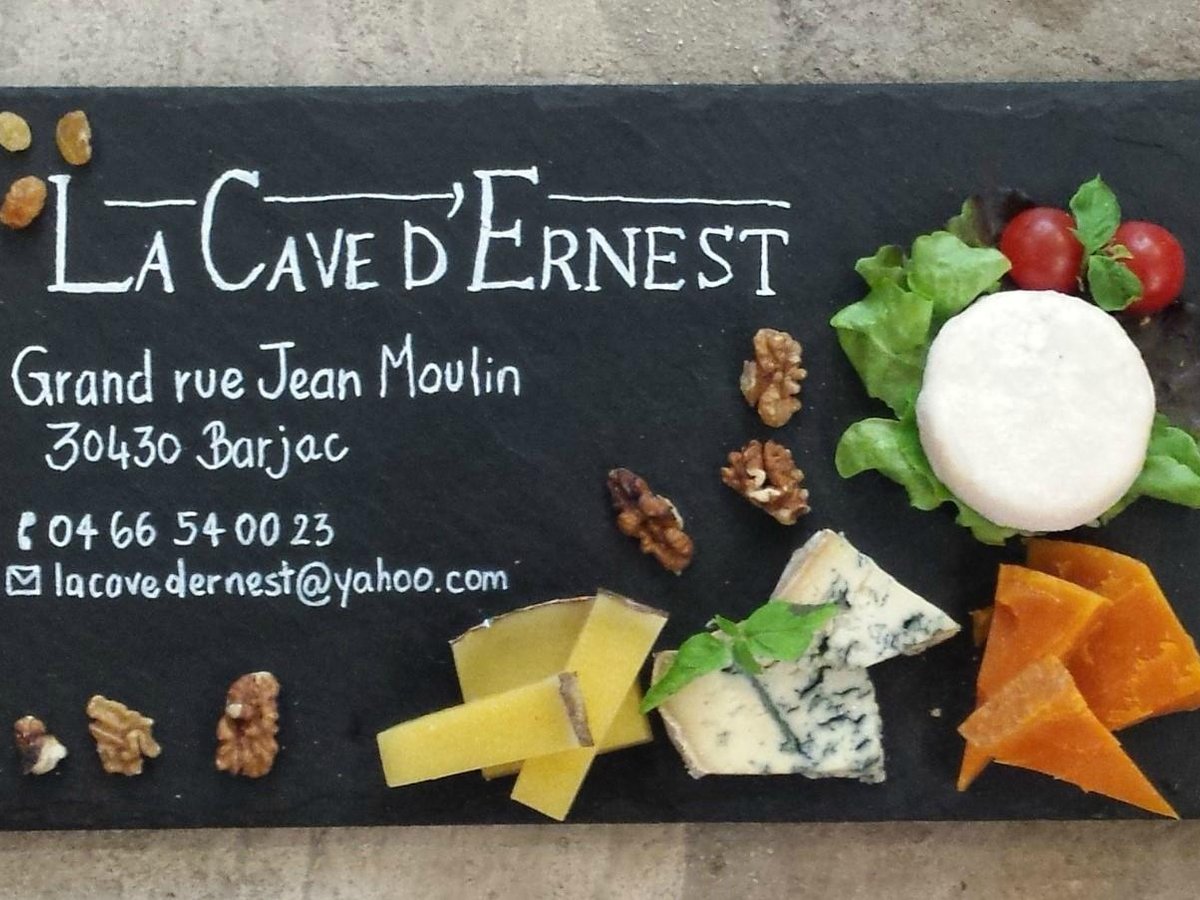 La Cave d'Ernest
Grand rue Jean Moulin
30430 Barjac
04 66 54 00 23
lacavedernest@yahoo.com